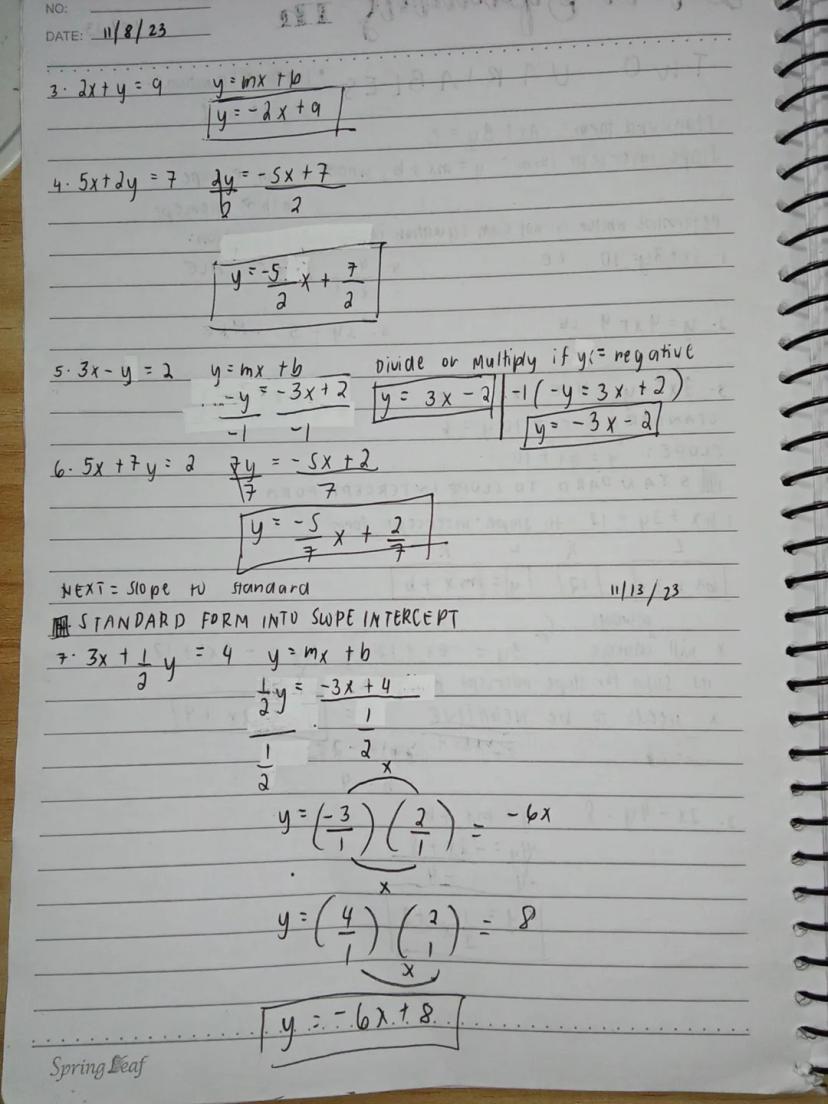 NO:
DATE: 11/8/23
3. 2x + y = 9 y = mx + b
y = -2x + 9
4. 5x + 2y = 7 2y = -5x + 7
2
y = -5/2 x + 7/2
5. 3x - y = 2 y = mx + b Divide or Multiply if y is = negative
-y = -3x + 2 y = 3x - 2 -1(-y = 3x + 2)
-1 -1 y = -3x - 2
6. 5x + 7y = 2 7y = -5x + 2
7 7
y = -5/7 x + 2/7
NEXT = Slope to standard 11/13/23
III. STANDARD FORM INTO SLOPE INTERCEPT
7. 3x + 1/2 y = 4 y = mx + b
1/2 y = -3x + 4
1/2 1/2
x
y = (-3/1) (2/1) = -6x
x
y = (4/1) (2/1) = 8
x
y = -6x + 8
Spring Leaf